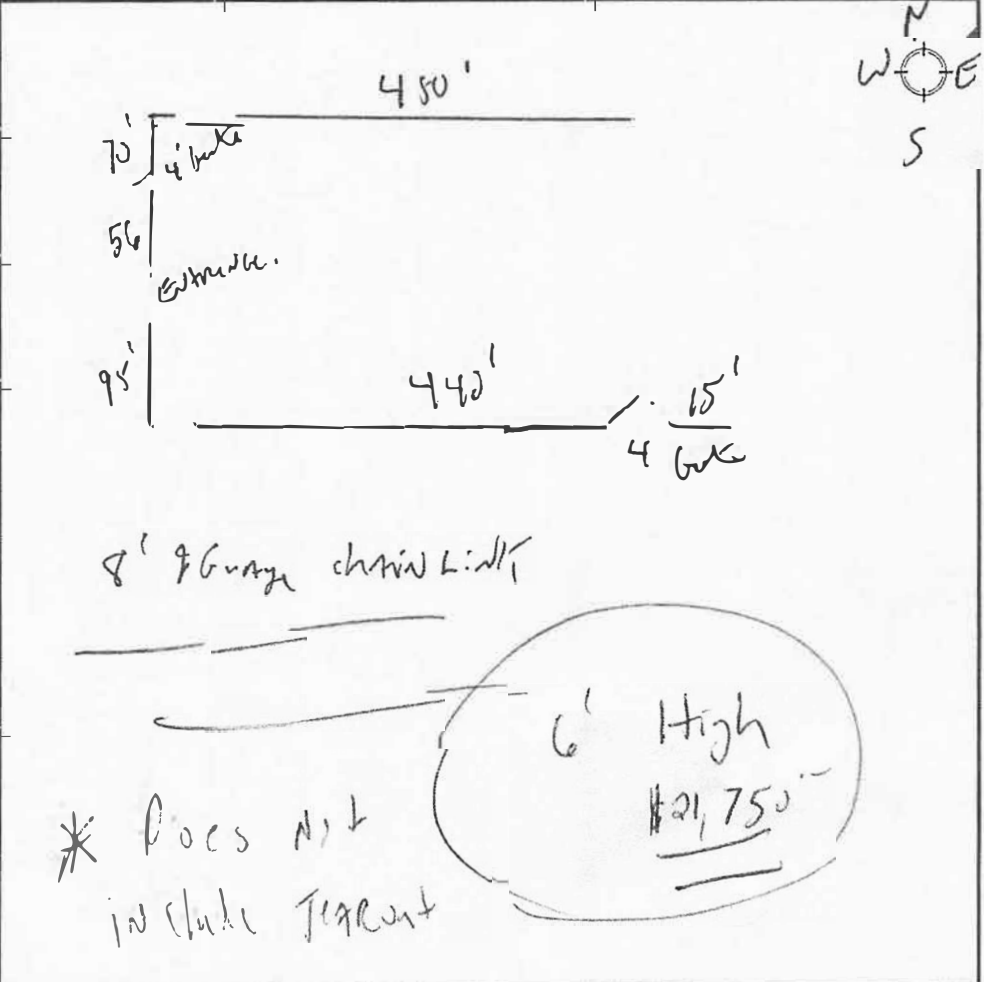 N
W E
S
450'
70'
4' Gate
56
ENTRENCE.
95'
440'
15'
4 Gate
8' 9 Guage chAiN LiNk
6' High
$21,750
* Does Not
iNclude TEAROut